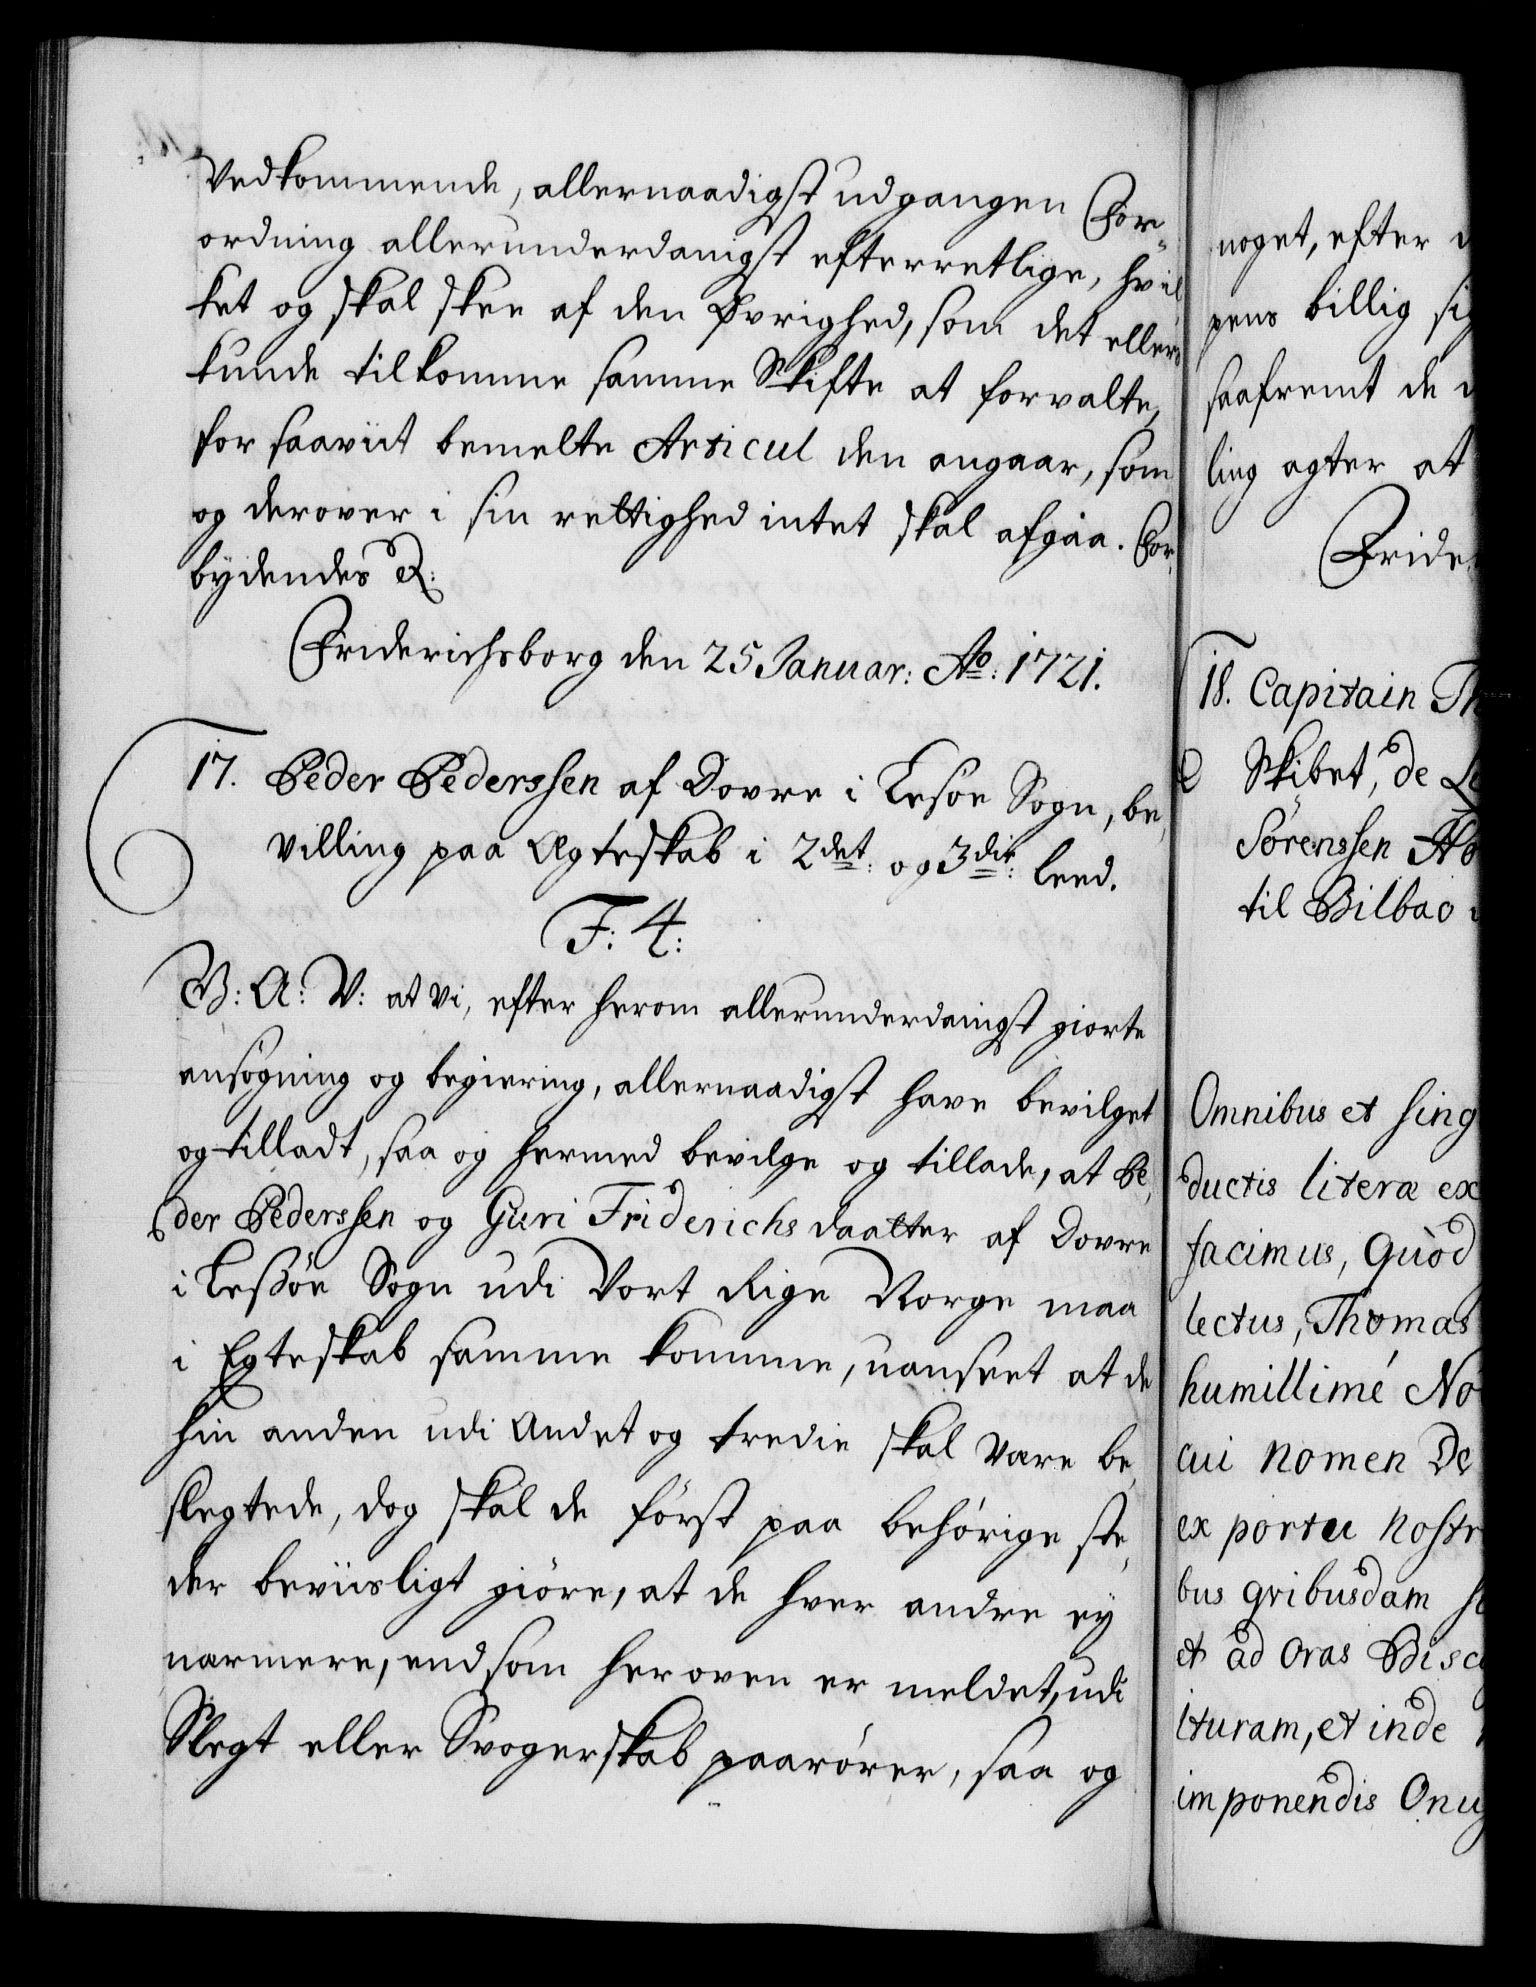 Vedkommende, allernaadigst udgangen For-
ordning allerunderdanigst efterretlige, hvil
ket og skal skee af den Øvrighed, som det ellers
kunde tilkomme samme Skifte at forvalte,
for saaviit bemelte Articul den angaar, som
og derover i sin rettighed intet skal afgaa. For
bydendes &:
Friderichsborg den 25 Januar: Ao: 1721.
17. Peder Pederssen af Dovre i Lesøe Sogn, be,
villing paa Ægteskab i 2det: og 3die: Leed.
F: 4:
V: A: V: at Vi, efter herom allerunderdanigst giorte
ansøgning og begiering, allernaadigst have bevilget
og tilladt, saa og hermed bevilge og tillade, at Pe,
der Pederssen og Guri Friderichs daatter af Dovre
i Lessøe Sogn udi Vort Rige Norge maa
i Egteskab samme komme, uanseet at de
hin anden udi Andet og tredie skal være be,
slegtede, dog skal de först paa behörige ste,
der beviisligt giöre, at de hver andre ey
nærmere, end som her oven er meldet, udi
Slegt eller Svogerskab paarörer, saa og
noget, efter
pens billig
saafremt de
ling agter at
18. Capitain
Skibet, de
Sörenssen
til Bilbao
Omnibus et
ductis literæ
facimus, Quòd
lectus, Thomas
humillimé
cui nomen De
ex portu
bus qvibusdam
et ad Oras
ituram, et inde
imponendis